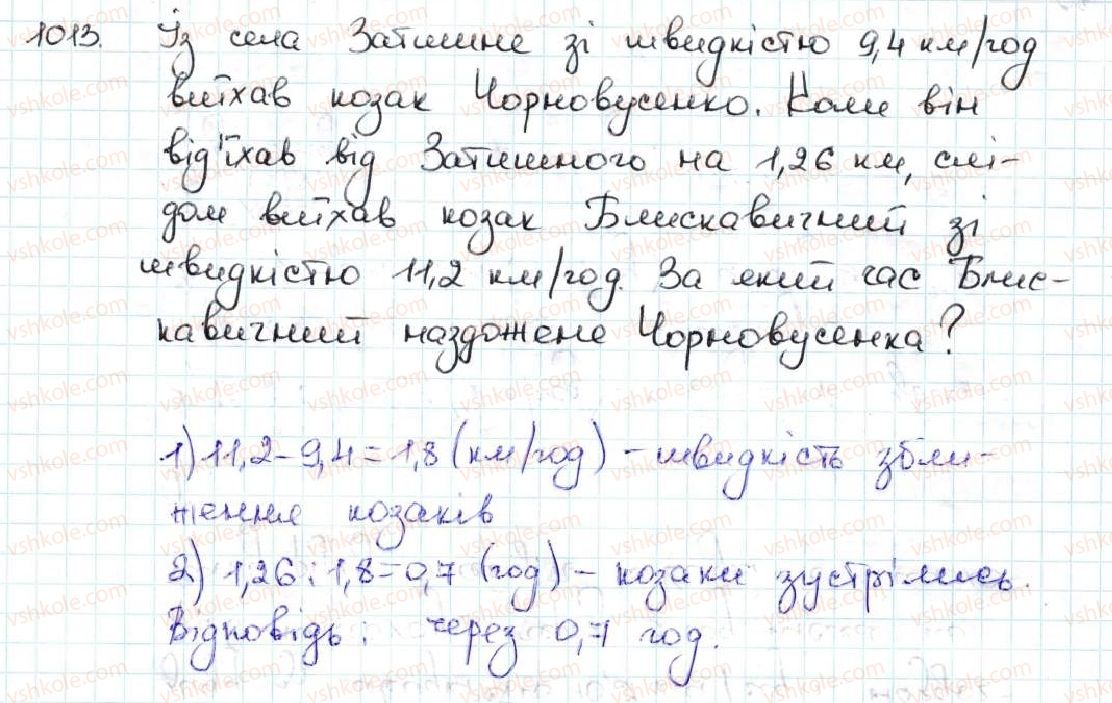 1013. Із села Затишне зі швидкістю 9,4 км/год
виїхав козак Чорновусенко. Коли він
від'їхав від Затишного на 1,26 км, слі-
дом виїхав козак Блискавичний зі
швидкістю 11,2 км/год. За який час Блис-
кавичний наздожене Чорновусенка?
1) 11,2 - 9,4 = 1,8 (км/год) - швидкість збли-
ження козаків
2) 1,26 : 1,8 = 0,7 (год) - козаки зустрілись.
Відповідь: через 0,7 год.